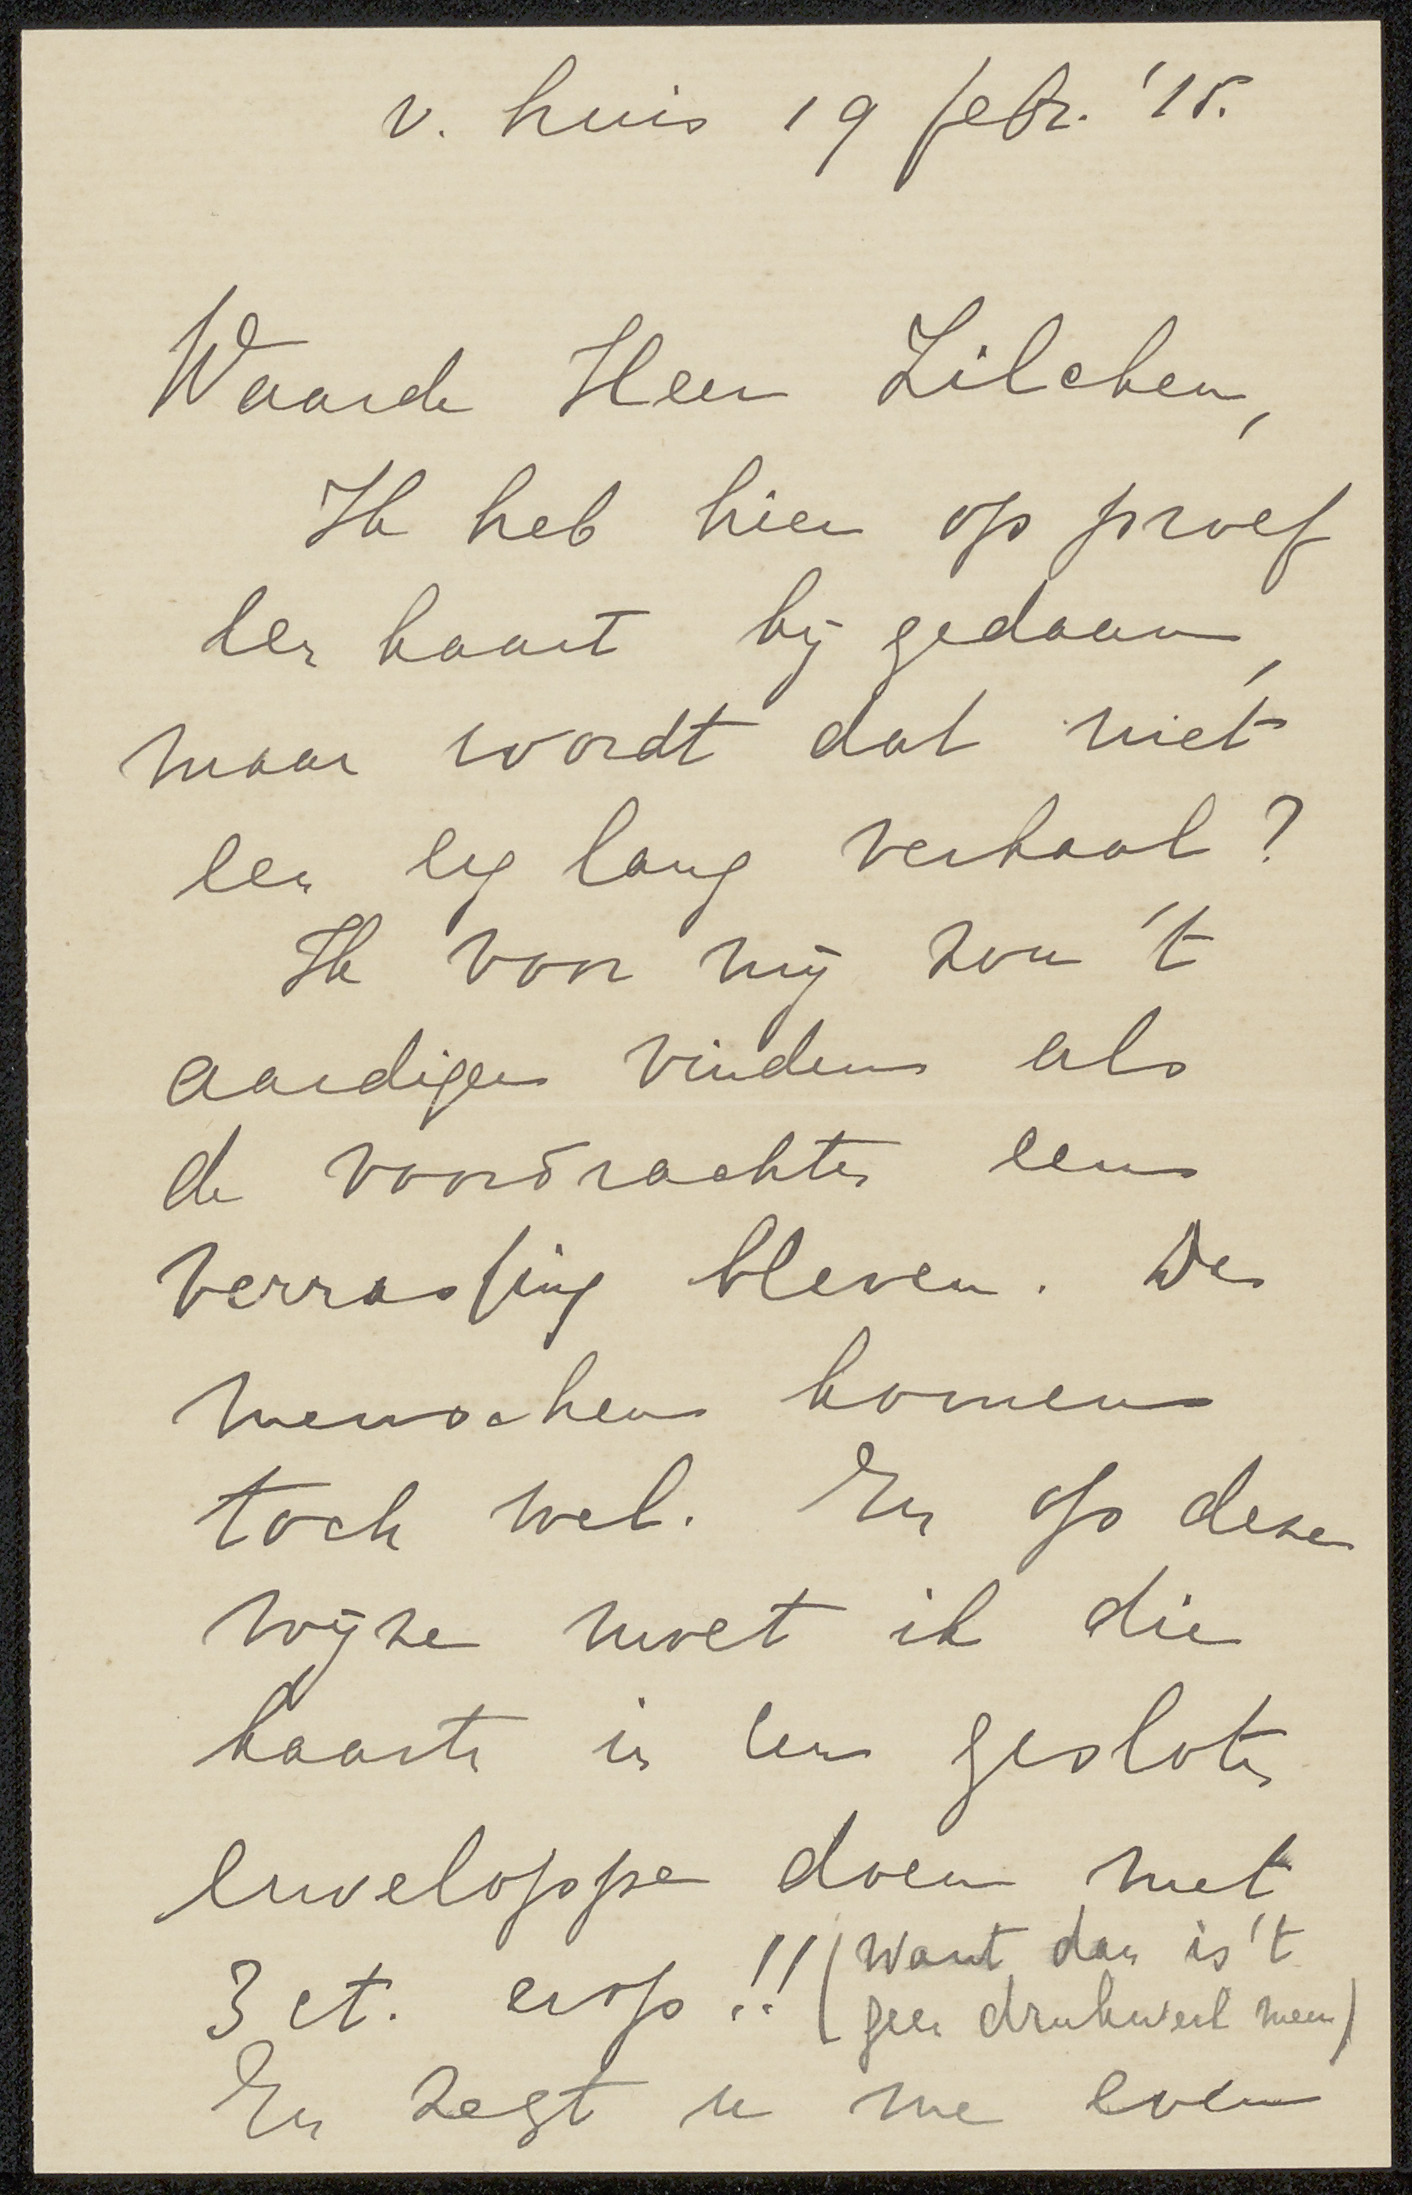 v. huis 19 febr. '15.
Waarde Heer Zilcken,
Ik heb hier op proef
een kaart bij gedaan,
maar wordt dat niet
een erg lang verhaal?
Ik voor mij zou 't
aardiger vinden als
de voordrachten eens
verrassing bleven. De
menschen komen
toch wel. En op deze
wijze moet ik die
kaarten in een gesloten
enveloppe doen met
3 ct. erop!! (want dan is 't
geen drukwerk meer)
En zegt u me even